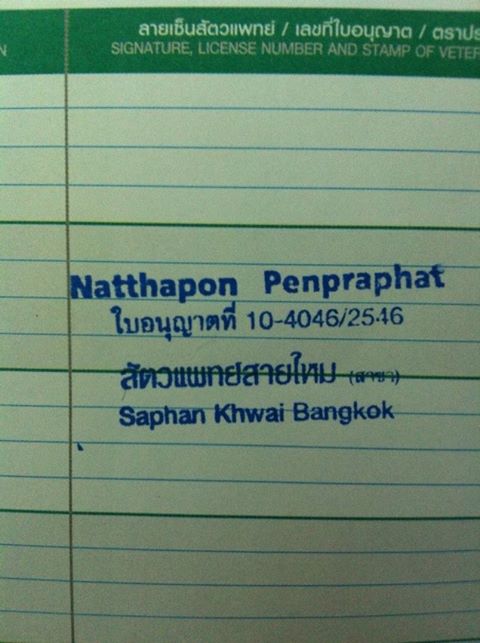 ลายเซ็นสัตวแพทย์ / เลขที่ใบอนุญาต /
SIGNATURE, LICENSE NUMBER AND STAMP OF
Natthapon Penpraphat
ใบอนุญาตที่ 10-4046/2546
สัตวแพทย์สายใหม (สาขา)
Saphan Khwai Bangkok